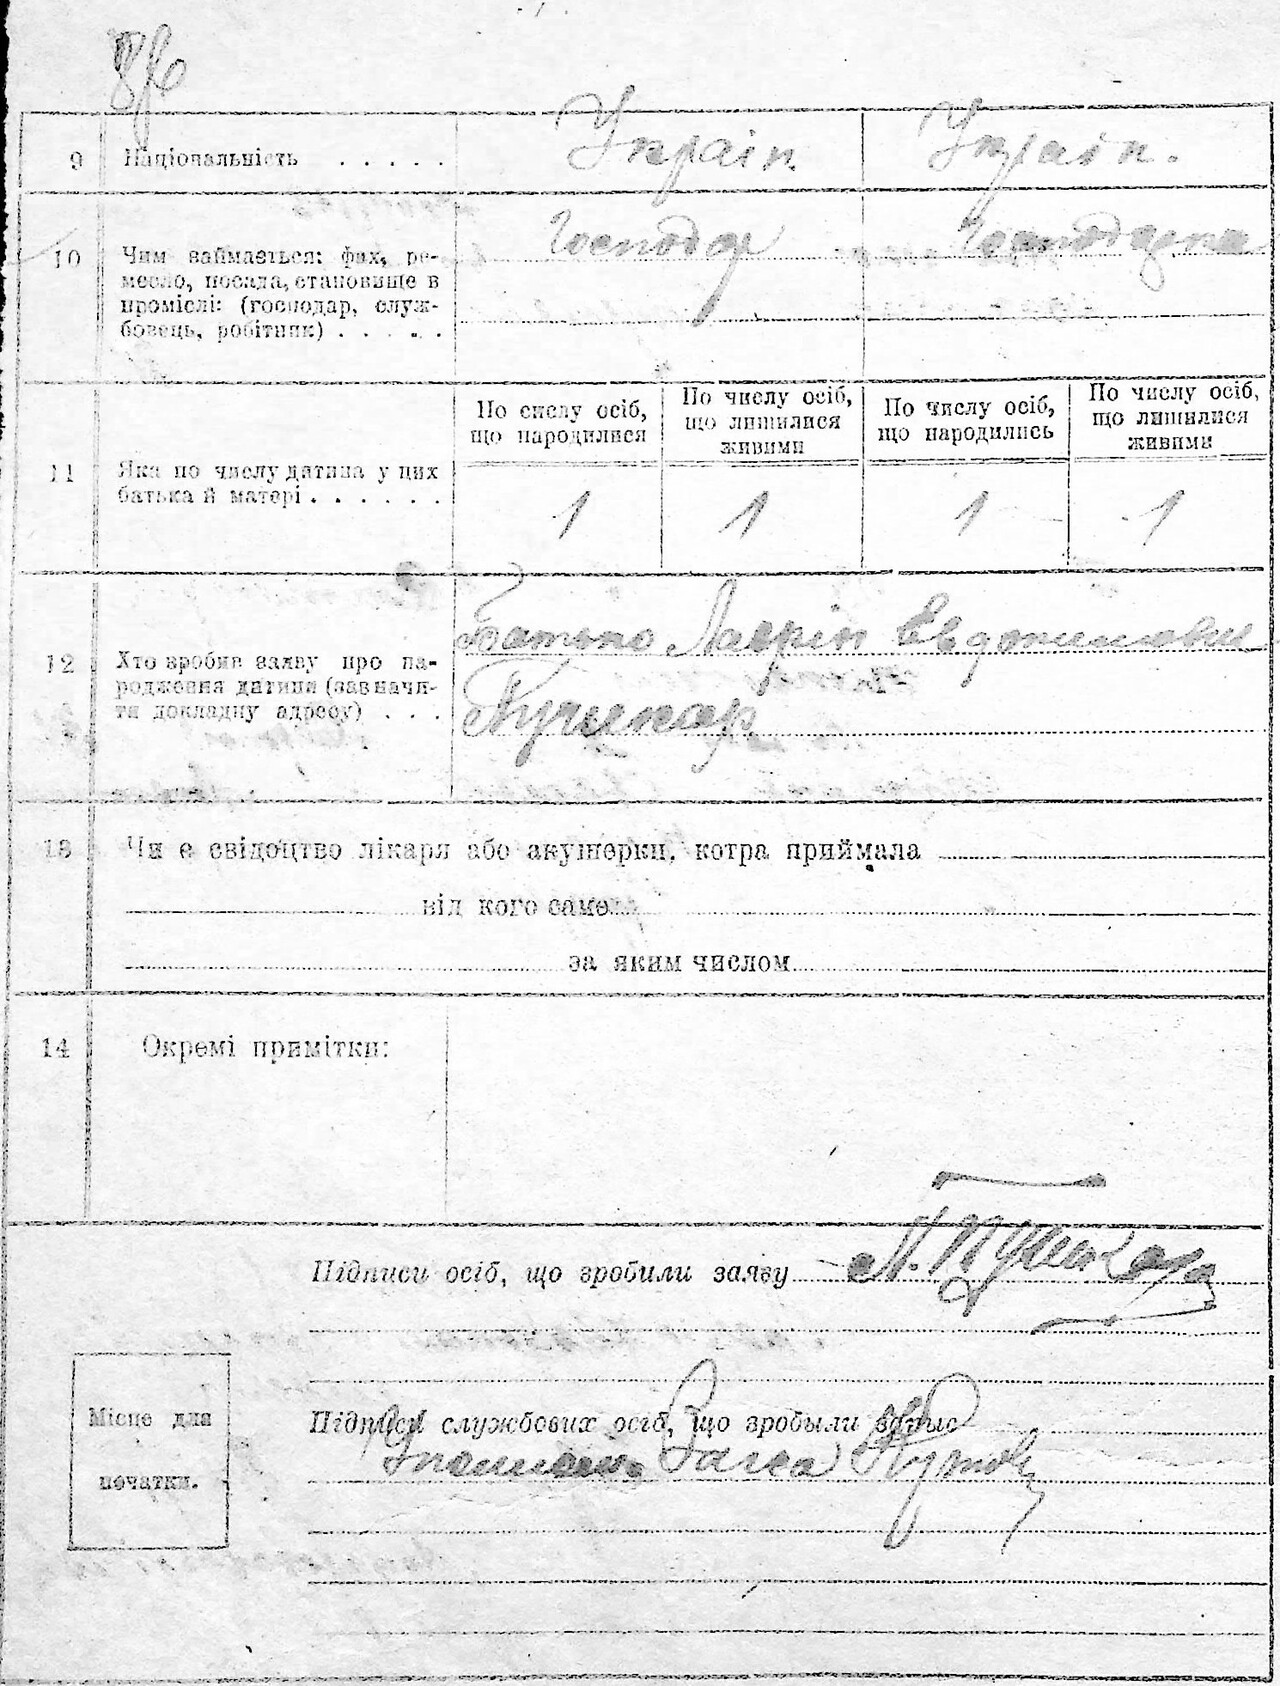 9 Національність . . . . . Україн. Україн.
10 Чим займається: фах, ре-
месло, посада, становище в
проміслі: (господар, служ-
бовець, робітник) . . . . .
Господар Господарка
По числу осіб, що народилися
По числу осіб, що лишилися живими
По числу осіб, що народились
По числу осіб, що лишилися живими
11 Яка по числу дитина у цих
батька й матері . . . . . .
1 1 1 1
12 Хто зробив заяву про на-
родження дитини (зазначи-
ти докладну адресу) . . .
Батько Лаврін Евдокимович
Пушкар
13 Чи є свідоцтво лікаря або акушерки, котра приймала
від кого саме
за яким числом
14 Окремі примітки:
Підписи осіб, що зробили заяву Л. Пушкар
Місце для
печатки.
Підписи службових осіб, що зробыли запыс
Загса